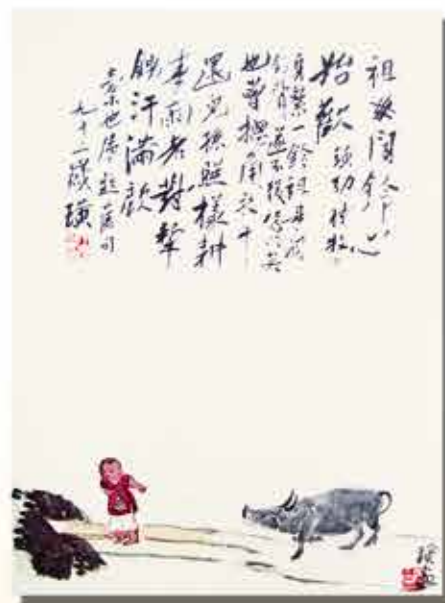 祖母聞鈴心
始歡 璜幼時牧
身繫一鈴祖母聞
鈴聲遂不復倚門矣
也曾總角牧牛
還兒孫照樣耕
春雨老對犂
鋤汗滿顏
也屬題舊句
九十一歲璜